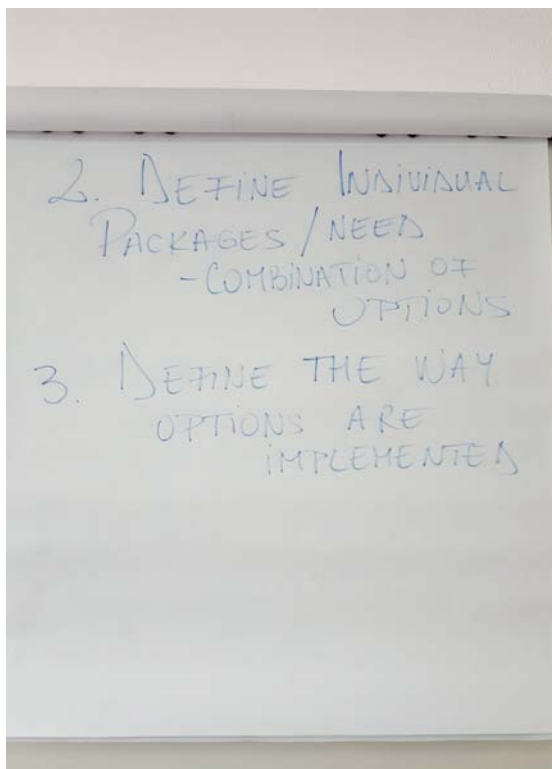 2. DEFINE INDIVIDUAL
PACKAGES / NEED
- COMBINATION OF
OPTIONS
3. DEFINE THE WAY
OPTIONS ARE
IMPLEMENTED